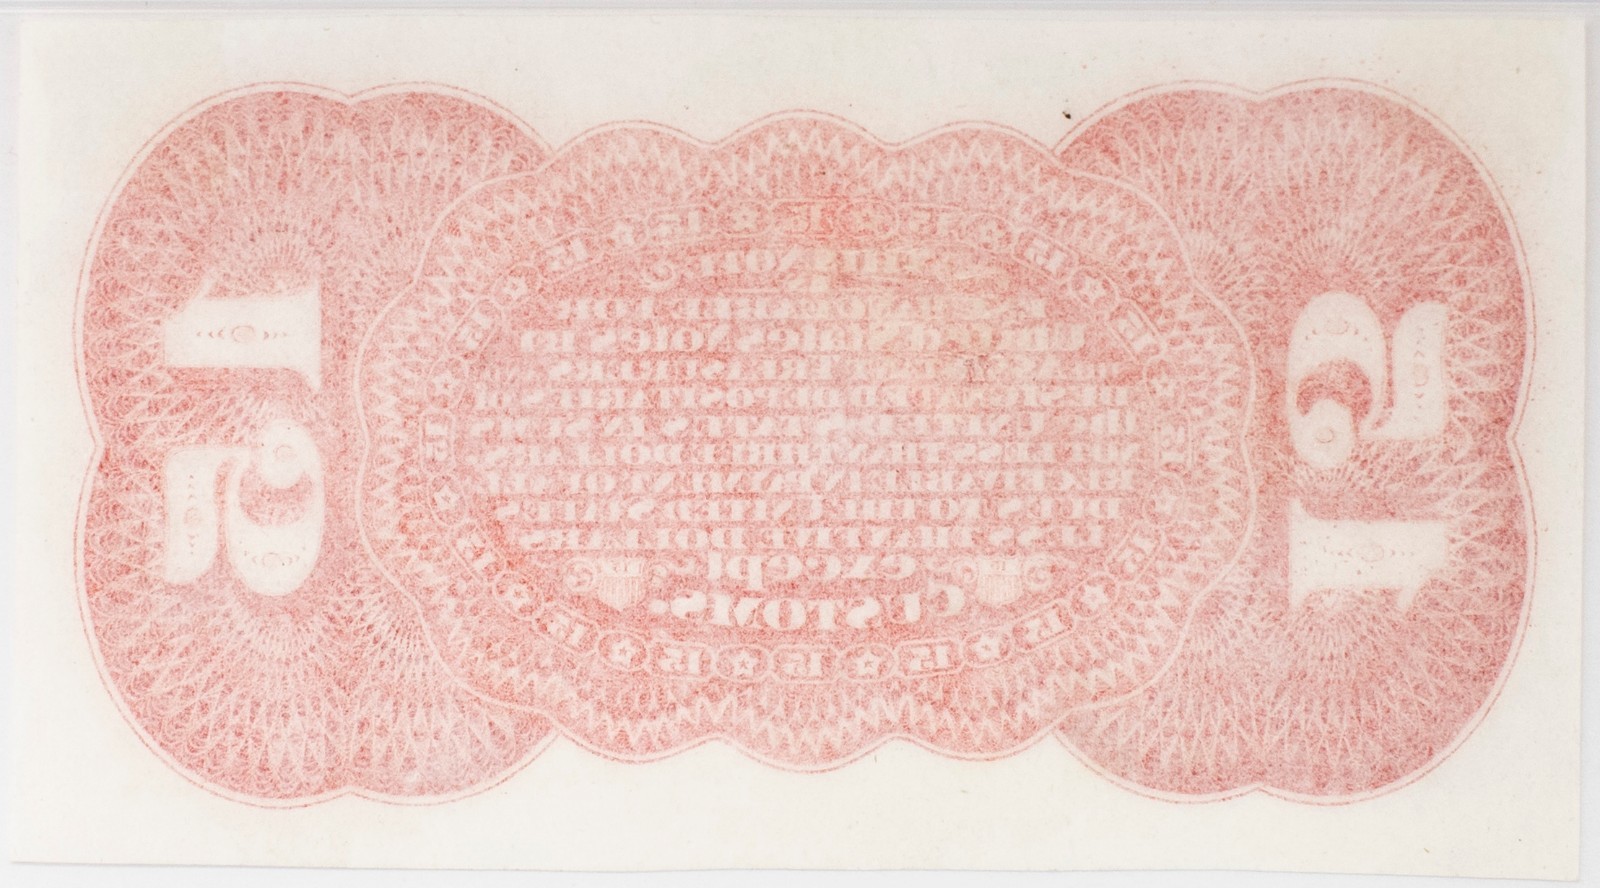 15
15
THIS NOTE
IS
EXCHANGEABLE FOR
United States Notes by
ASSISTANT TREASURERS
DESIGNATED DEPOSITARIES of
the UNITED STATES IN SUMS
NOT LESS THAN THREE DOLLARS.
RECEIVABLE IN PAYMENT OF ALL
DUES TO THE UNITED STATES
LESS THAN FIVE DOLLARS
except
CUSTOMS.
15 15 15 15 15 15